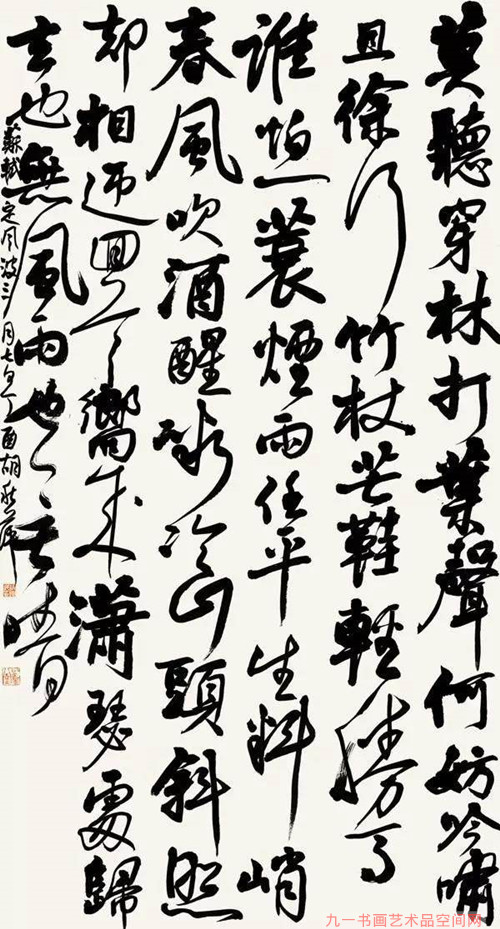 莫聽穿林打葉聲何妨吟嘯
且徐行竹杖芒鞋輕勝馬
誰怕一蓑煙雨任平生料峭
春風吹酒醒微冷山頭斜照
却相迎回首嚮来瀟瑟處歸
去也無風雨也無晴
蘇軾定風波三月七日丁酉胡秋萍
九一书画艺术品空间网